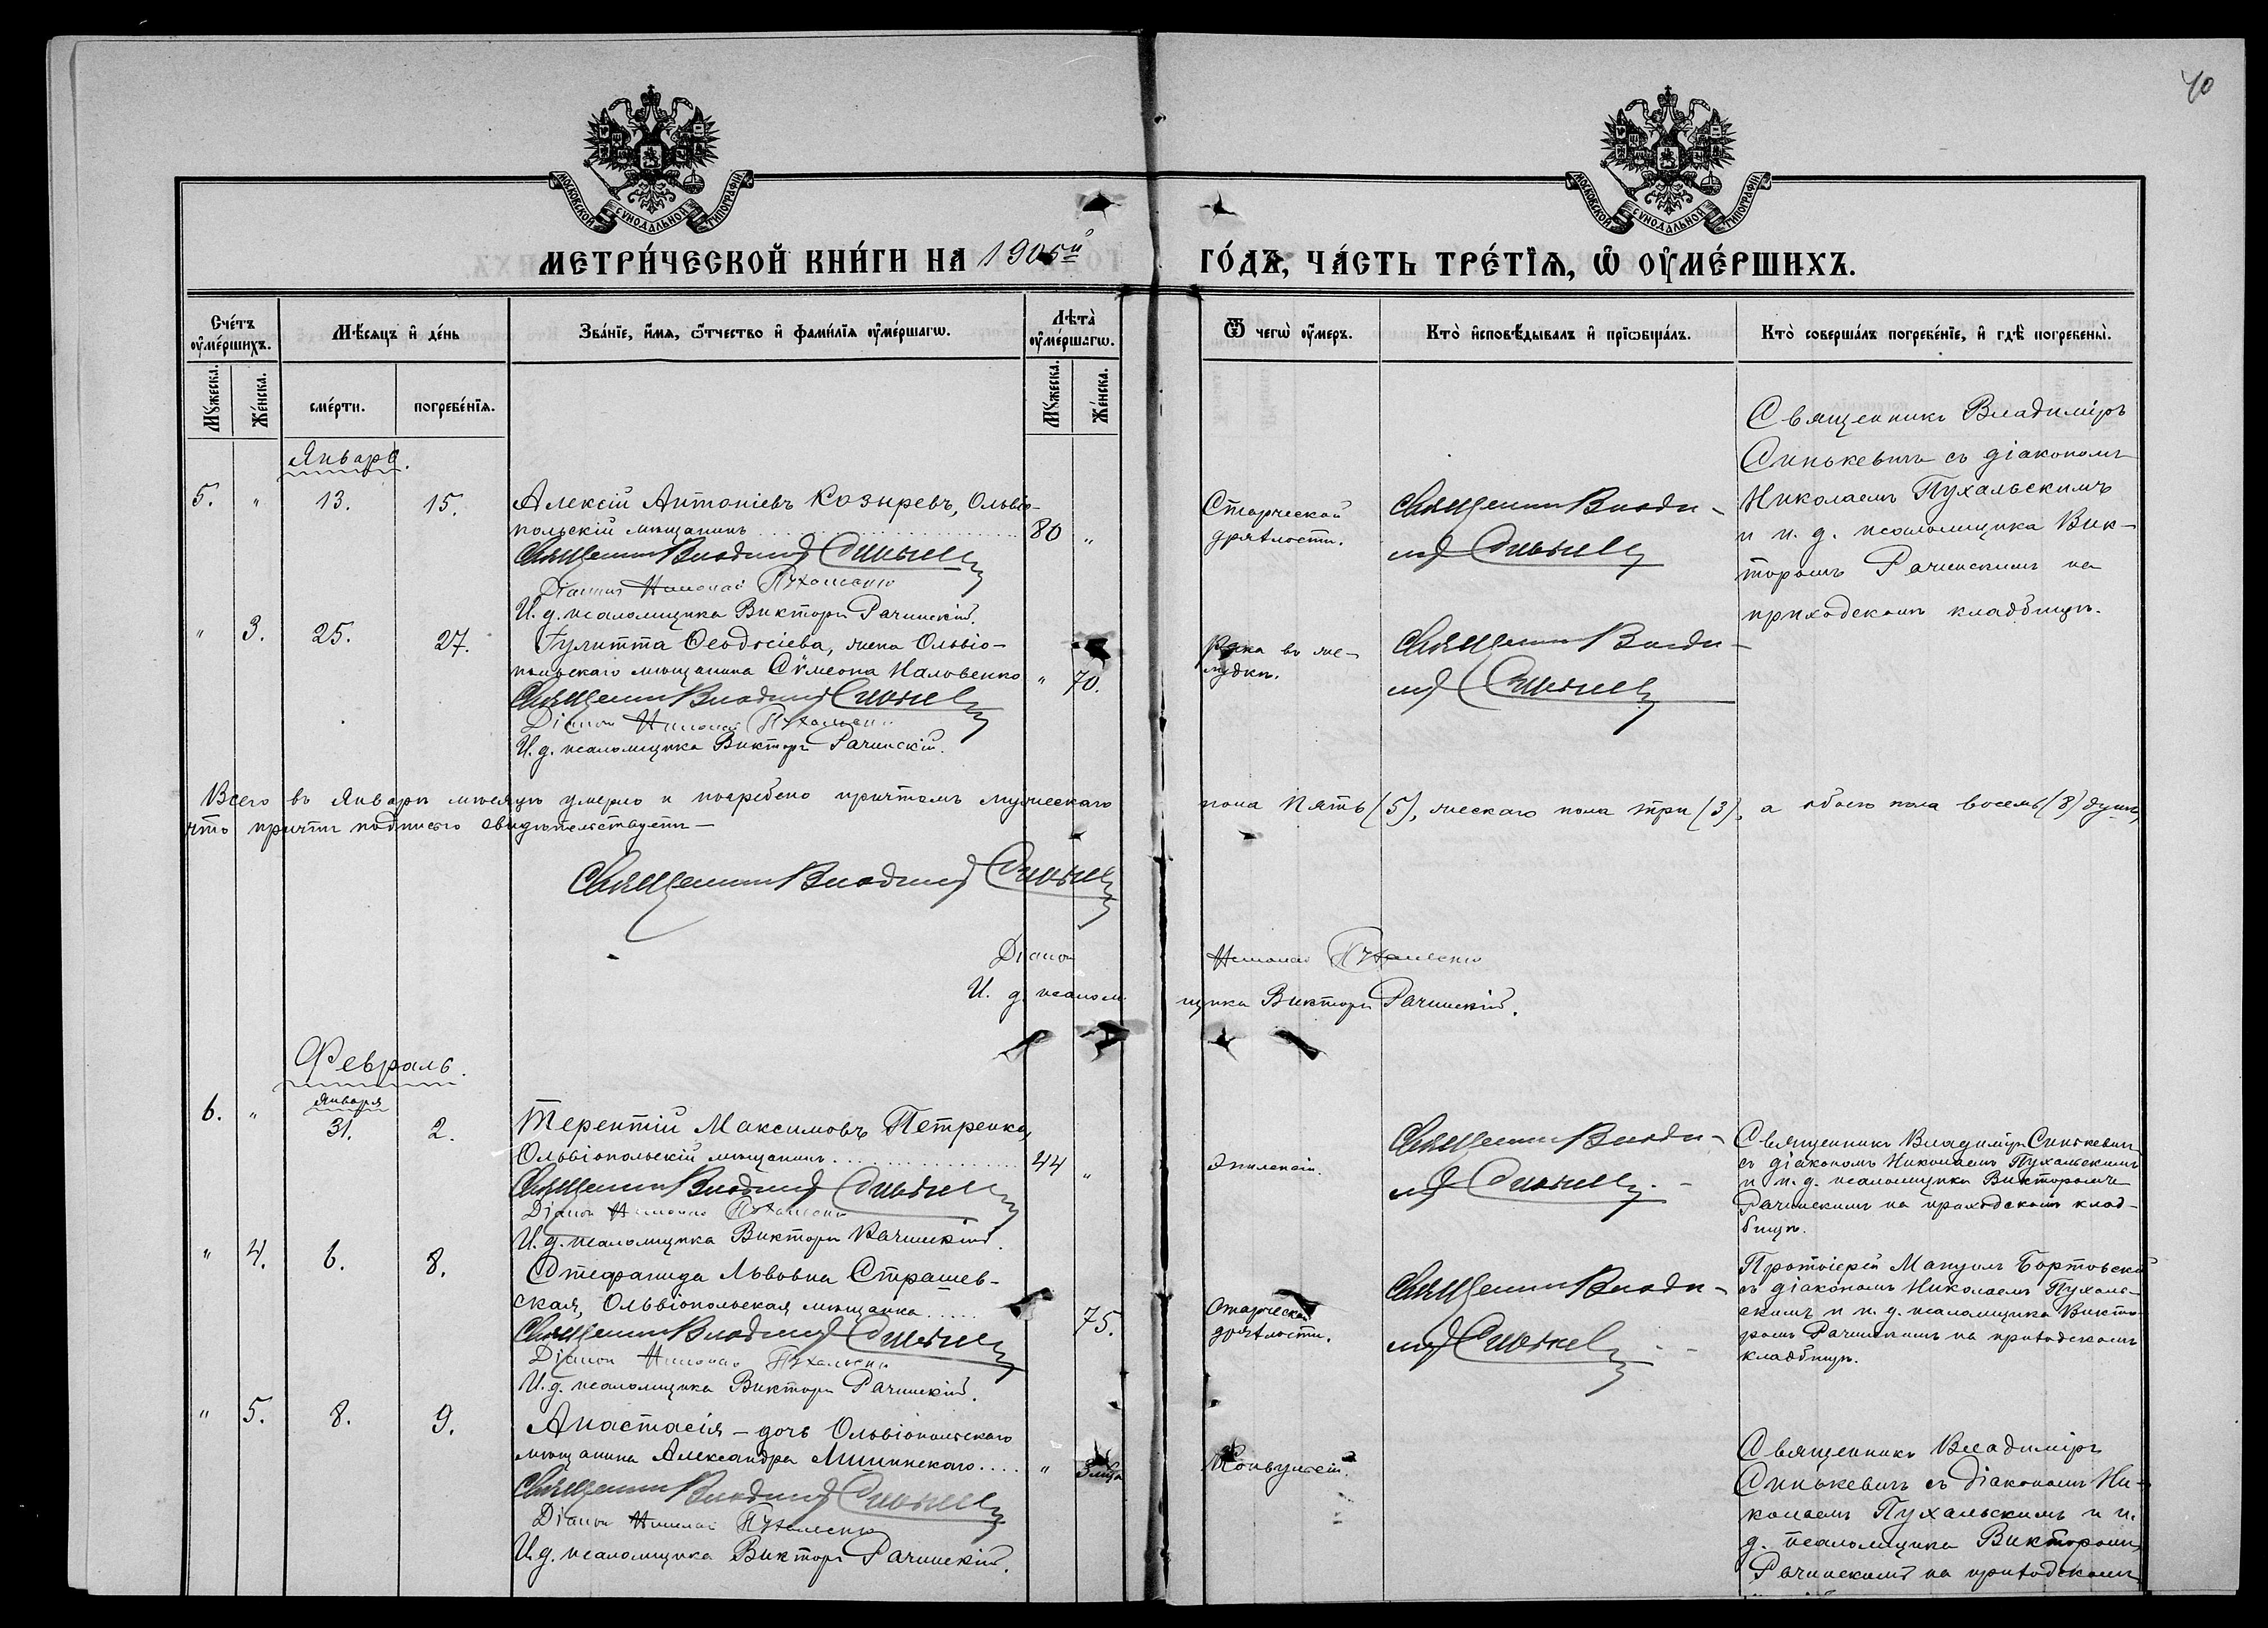 40
МОСКОВСКОЙ СУНОДАЛЬНОЙ ТИПОГРАФІИ
МОСКОВСКОЙ СУНОДАЛЬНОЙ ТИПОГРАФІИ
МЕТРИ́ЧЕСКОЙ КНИ́ГИ НА 1905й
ГО́ДЪ, ЧА́СТЬ ТРЕ́ТЇѦ, Ѡ ОУ҆МЕ́РШИХЪ.
Сче́тъ оу҆ме́ршихъ.
Мѣ́сяцъ и҆ де́нь
Зва́нїе, и҆́мя, ѻ҆́тчество и҆ фами́лїя оу҆ме́ршагѡ.
Лѣта̀ оу҆ме́ршагѡ.
Ѿ чегѡ̀ оу҆́меръ.
Кто̀ и҆сповѣ́дывалъ и҆ прїѡбща́лъ.
Кто̀ соверша́лъ погребе́нїе, и҆ гдѣ̀ погребены̀.
Му́жеска.
Же́нска.
сме́рти.
погребе́нїя.
Му́жеска.
Же́нска.
Январь.
5. " 13. 15.
Алексій Антоніевъ Козыревъ, Ольвіо-
польскій мѣщанинъ 80 "
Священникъ Владиміръ Синькевичъ
Діаконъ Николай Пухальскій
И. д. псаломщика Викторъ Рачинскій.
Старческой
дряхлости.
Священникъ Влади-
міръ Синькевичъ
Священникъ Владиміръ
Синькевичъ съ діакономъ
Николаемъ Пухальскимъ
и и. д. псаломщика Вик-
торомъ Рачинскимъ на
приходскомъ кладбищѣ.
" 3. 25. 27.
Іулитта Ѳеодосіева, жена Ольвіо-
польскаго мѣщанина Сѵмеона Наловенко " 70.
Священникъ Владиміръ Синькевичъ
Діаконъ Николай Пухальскій
И. д. псаломщика Викторъ Рачинскій.
Рака въ же-
лудкѣ.
Священникъ Влади-
міръ Синькевичъ
Всего въ Январѣ мѣсяцѣ умерло и погребено причтомъ мужескаго пола пять (5), женскаго пола три (3), а обоего пола восемь (8) душъ,
что причтъ подписью свидѣтельствуетъ —
Священникъ Владиміръ Синькевичъ
Діаконъ Николай Пухальскій
И. д. псаломщика Викторъ Рачинскій.
Февраль.
6. " Января 31. 2.
Терентій Максимовъ Петренко,
Ольвіопольскій мѣщанинъ 44 "
Священникъ Владиміръ Синькевичъ
Діаконъ Николай Пухальскій
И. д. псаломщика Викторъ Рачинскій.
Эпилепсіи.
Священникъ Влади-
міръ Синькевичъ
Священникъ Владиміръ Синькевичъ
съ діакономъ Николаемъ Пухальскимъ
и и. д. псаломщика Викторомъ
Рачинскимъ на приходскомъ клад-
бищѣ.
" 4. 6. 8.
Стефанида Львовна Страшев-
ская, Ольвіопольская мѣщанка 75.
Священникъ Владиміръ Синькевичъ
Діаконъ Николай Пухальскій
И. д. псаломщика Викторъ Рачинскій.
Старческой
дряхлости.
Священникъ Влади-
міръ Синькевичъ
Протоіерей Мануилъ Бортовскій
съ діакономъ Николаемъ Пухаль-
скимъ и и. д. псаломщика Викто-
ромъ Рачинскимъ на приходскомъ
кладбищѣ.
" 5. 8. 9.
Анастасія - дочь Ольвіопольскаго
мѣщанина Александра " 3 мѣца
Священникъ Владиміръ Синькевичъ
Діаконъ Николай Пухальскій
И. д. псаломщика Викторъ Рачинскій.
Конвульсіи.
Священникъ Владиміръ
Синькевичъ съ діакономъ Ни-
колаемъ Пухальскимъ и и.
д. псаломщика Викторомъ
Рачинскимъ на приходскомъ